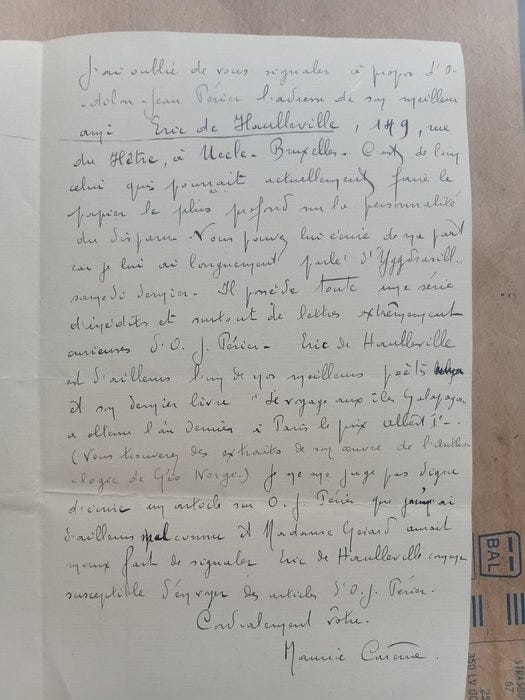 J'ai oublié de vous signaler à propos d'O-
-dilon-Jean Périer l'adresse de son meilleur
ami Eric de Haulleville, 149, rue
du Hêtre, à Uccle-Bruxelles. C'est de loin
celui qui pourrait actuellement faire le
papier le plus profond sur la personnalité
du disparu. Vous pouvez lui écrire de ma part
car je lui ai longuement parlé d'Yggdrasill..
samedi dernier. Il possède toute une série
d'inédits et surtout de lettres extrêmement
curieuses d'O. J. Périer. Eric de Haulleville
est d'ailleurs l'un de nos meilleurs poètes
et son dernier livre "Le voyage aux îles Galapagos
a obtenu l'an dernier à Paris le prix Albert Ier.
(Vous trouverez des extraits de son œuvre de l'antho-
-logie de Géo Norge.) Je ne me juge pas digne
d'écrire un article sur O. J. Périer que j'ai
d'ailleurs mal connu et Madame Gérard aurait
mieux fait de signaler Eric de Haulleville comme
susceptible d'envoyer des articles d'O. J. Périer.
Cordialement vôtre.
Maurice Carême.
BAL
350 LV 00